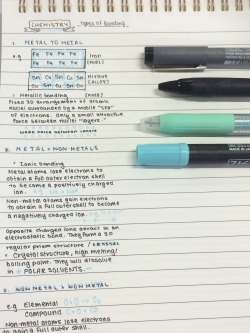 CHEMISTRY Types of Bonding
1. METAL TO METAL
e.g Fe Fe Fe Fe Iron
Fe Fe Fe Fe (METAL)
Cu Sn Cu Sn
Sn Cu Sn Cu (ALLOY)
Metallic Bonding
Fixed 3D arrangement of atomic
nuclei surrounded by a mobile "sea"
of electrons. Only a small attractive
force between nuclei "layers".
2. METAL + NON-METALS
Ionic Bonding
Metal atoms lose electrons to
obtain a full outer electron shell
to become a positively charged
ion.
Non-metal atoms gain electrons
to obtain a full outer shell to become
a negatively charged ion.
Opposite charged ions attract in an
electrostatic bond. They form a 3D
regular prism structure / CRYSTAL
Crystal structure, high melting/
boiling point. They will dissolve
in POLAR SOLVENTS.
3. NON METAL + NON METAL
e.g. Elemental
Compound
Non-metal atoms lose electrons
to gain a full outer shell.